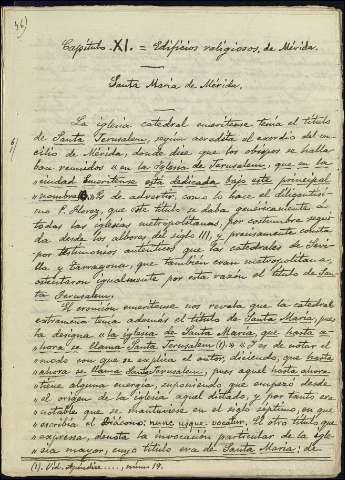 46)
Capítulo XI. = Edificios religiosos, de Mérida.
Santa María de Mérida.
La iglesia catedral emeritense tenía el título
6/
de Santa Jerusalem, según acredita el exordio del con-
cilio de Mérida, donde dice que los obispos se halla-
ban reunidos "en la Iglesia de Jerusalem, que en la
"ciudad Emeritense está dedicada bajo este principal
"nombre". Es de advertir, como lo hace el diligentísi-
mo P. Florez, que este título se daba genéricamente á
todas las iglesias metropolitanas, por costumbre segui-
da desde los albores del siglo III, y precisamente consta
por testimonios auténticos que las catedrales de Sevi-
lla y Tarragona, que también eran metropolitanas,
ostentaron igualmente por esta razón el título de San-
ta Jerusalem.
El cronicón emeritense nos revela que la catedral
extremeña tenía además el título de Santa María, pues
la designa "la iglesia de Santa María, que hasta a-
"hora se llama Santa Jerusalem (1)." "Es de notar el
"modo con que se explica el autor, diciendo, que hasta
"ahora se llama Santa Jerusalem, pues aquel hasta ahora
"tiene alguna energía, suponiendo que empezó desde
"el origen de la iglesia aquel dictado, y por tanto era
"notable que se mantuviese en el siglo séptimo, en que
"escribía el Diácono: nunc usque vocatur. El otro título que
"expresa, denota la invocación particular de la igle-
"sia mayor, cuyo título era de Santa María: de
(1). Vid. Apéndice ...., núm. 19.